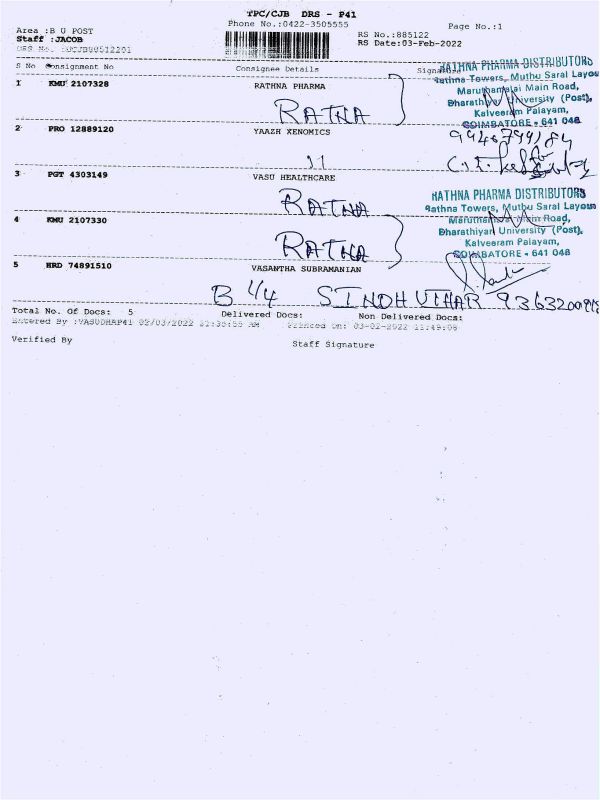 TPC/CJB DRS - P41
Phone No.:0422-3505555
Page No.:1
Area :B U POST
Staff :JACOB
RS No.:885122
RS Date:03-Feb-2022
S No Consignment No Consignee Details Signature
1 KMU 2107328 RATHNA PHARMA
RATNA
RATHNA PHARMA DISTRIBUTORS
Rathna Towers, Muthu Saral Layout
Maruthamalai Main Road,
Bharathiyar University (Post),
Kalveeram Palayam,
COIMBATORE - 641 046
2 PRO 12889120 YAAZH XENOMICS
3 PGT 4303149 VASU HEALTHCARE
RATNA
RATHNA PHARMA DISTRIBUTORS
Rathna Towers, Muthu Saral Layout
Maruthamalai Main Road,
Bharathiyar University (Post),
Kalveeram Palayam,
COIMBATORE - 641 046
4 KMU 2107330
RATNA
5 HRD 74891510 VASANTHA SUBRAMANIAN
B 1/4 SINDH VIHAR
Total No. Of Docs: 5 Delivered Docs: Non Delivered Docs:
Entered By :VASUDHAP41 02/03/2022 11:35:55 AM Printed On: 03-02-2022 11:49:08
Verified By Staff Signature